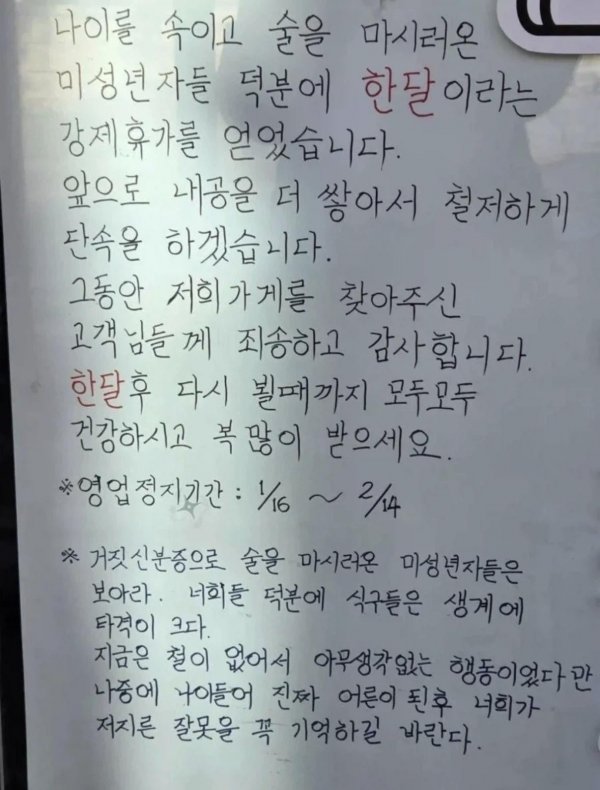 나이를 속이고 술을 마시러온
미성년자들 덕분에 한달이라는
강제휴가를 얻었습니다.
앞으로 내공을 더 쌓아서 철저하게
단속을 하겠습니다.
그동안 저희가게를 찾아주신
고객님들께 죄송하고 감사합니다.
한달후 다시 뵐때까지 모두모두
건강하시고 복많이 받으세요.
※영업정지기간 : 1/16 ~ 2/14
※ 거짓신분증으로 술을 마시러온 미성년자들은
보아라. 너희들 덕분에 식구들은 생계에
타격이 크다.
지금은 철이 없어서 아무생각없는 행동이었다만
나중에 나이들어 진짜 어른이 된후 너희가
저지른 잘못을 꼭 기억하길 바란다.